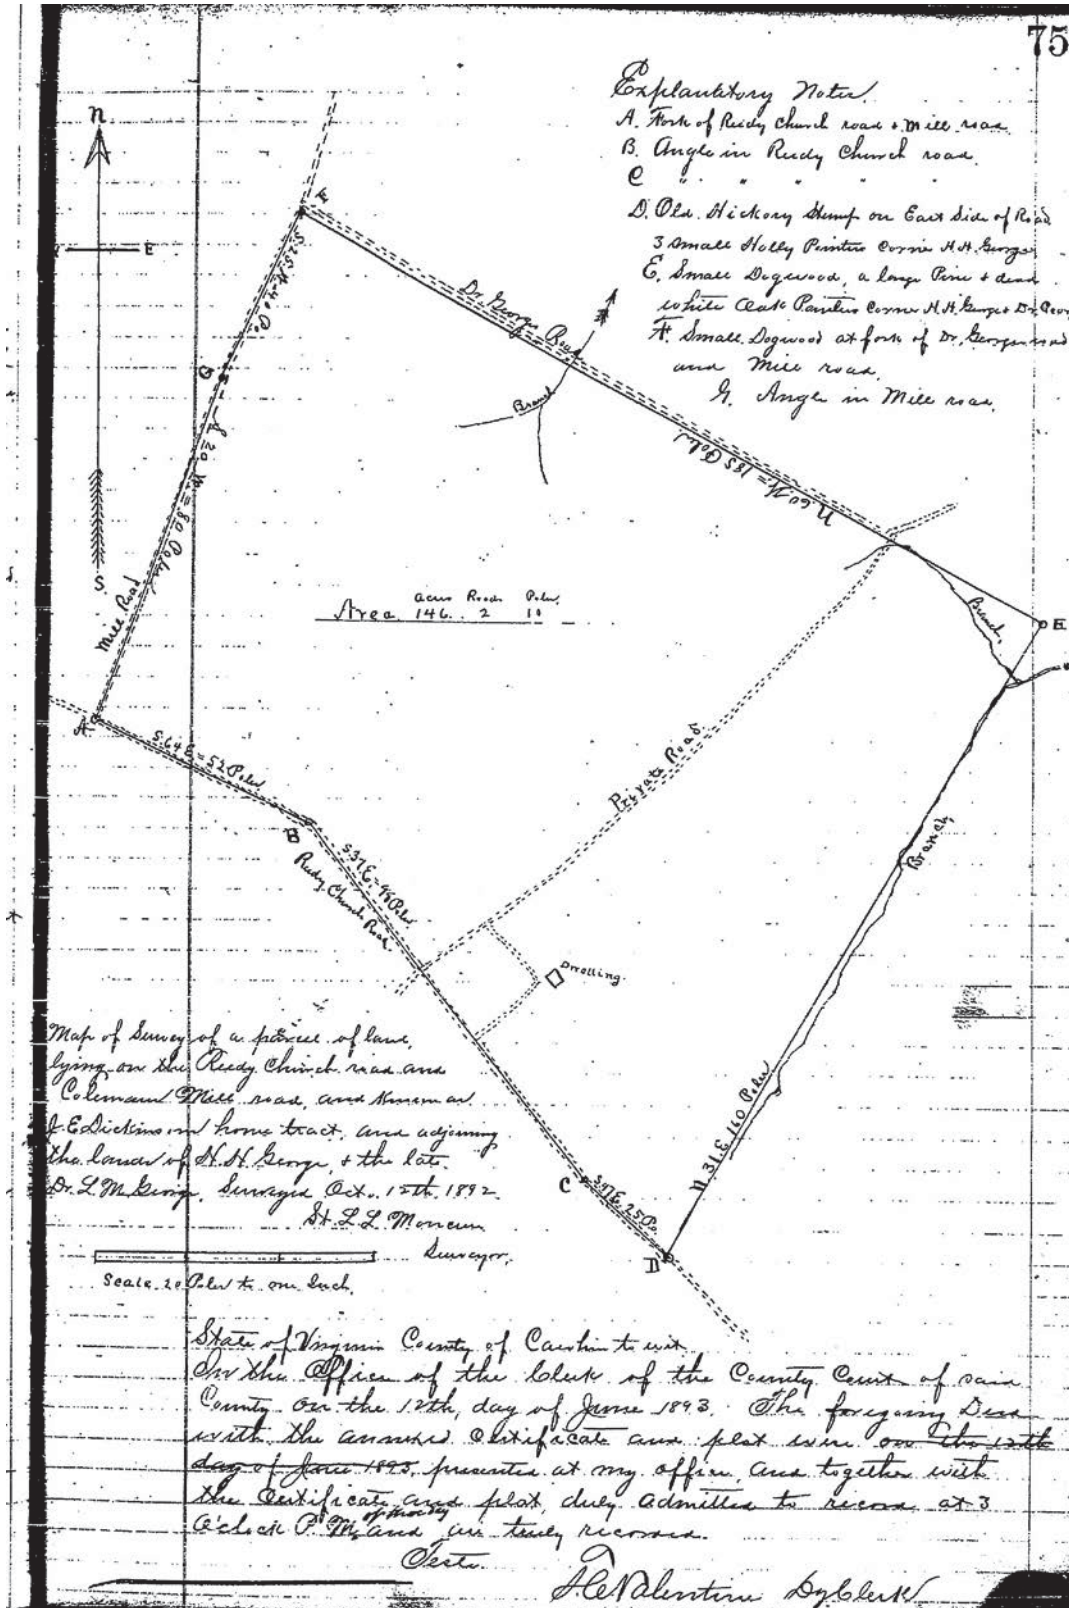 75
Explanatory Notes.
A. Fork of Reedy Church road & Mill road
B. Angle in Reedy Church road.
C " " " " "
D. Old Hickory Stump on East Side of Road
3 Small Holly Pointers Corner H. H. George
E. Small Dogwood, a large Pine & dead
white Oak Pointers Corner H. H. George & Dr. Geor
F. Small Dogwood at fork of Dr. George road
and Mill road.
G. Angle in Mill road.
N
E
S
F
S 25 W = 40 Po.
G
S 20 W = 80 Poles
Mill Road
A
Dr. George Road
Branch
N. 60 W = 185 Poles
Area
Acres Roods Poles
146. 2 10
Branch,
E
S. 64 E = 52 Poles
B
S. 37 E. = 98 Poles
Reedy Church Road.
Private Road.
Branch,
Dwelling.
N. 31. E. 160 Poles
C
S. 47 E. 25 Po.
D
Map of Survey of a parcel of land,
lying on the Reedy Church road and
Coleman Mill road, and known as
J. E. Dickinson home tract, and adjoining
the lands of H. H. George, & the late
Dr. L. M. George, Surveyed Oct. 15th, 1892.
St. L. L. Moncure
Surveyor,
Scale 20 Poles to one Inch.
State of Virginia County of Caroline to wit
In the Office of the Clerk of the County Court of said
County on the 12th, day of June 1893. The foregoing Deed
with the annexed Certificate and plat were on the 12th
day of June 1893, presented at my office, and together with
the Certificate and plat, duly admitted to record at 3
O'clock P. M, and are truly recorded.
Teste.
J. C. Valentine Dy Clerk